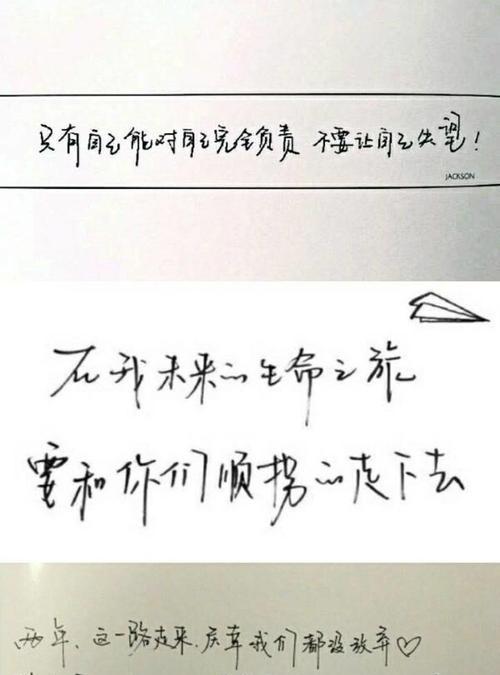 只有自己能对自己完全负责 不要让自己失望!
JACKSON
在我未来的生命之旅
要和你们顺拐的走下去
两年、这一路走来、庆幸我们都没放弃♡